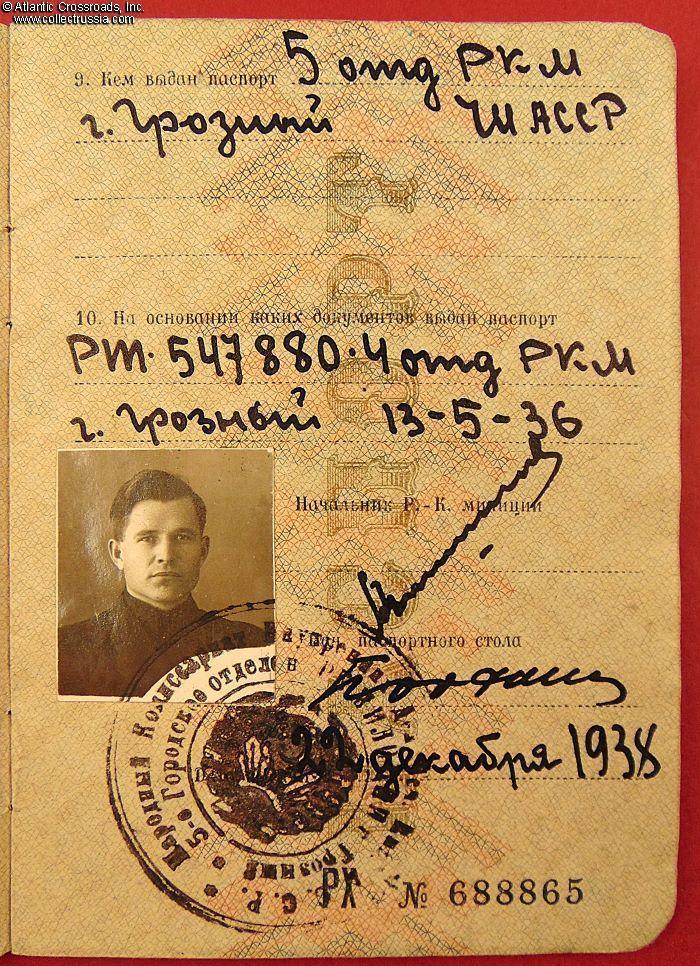 © Atlantic Crossroads, Inc.
www.collectrussia.com
9. Кем выдан паспорт 5 отд РКМ
г. Грозный ЧИАССР
ПАСПОРТ
10. На основании каких документов выдан паспорт
РШ. 547880. 4 отд РКМ
г. Грозный 13-5-36
Начальник Р.-К. милиции
Нач. паспортного стола
22 декабря 1938
Народный Комиссариат Внутрен
5-е Городское отделен
г. Грозный
РХ № 688865